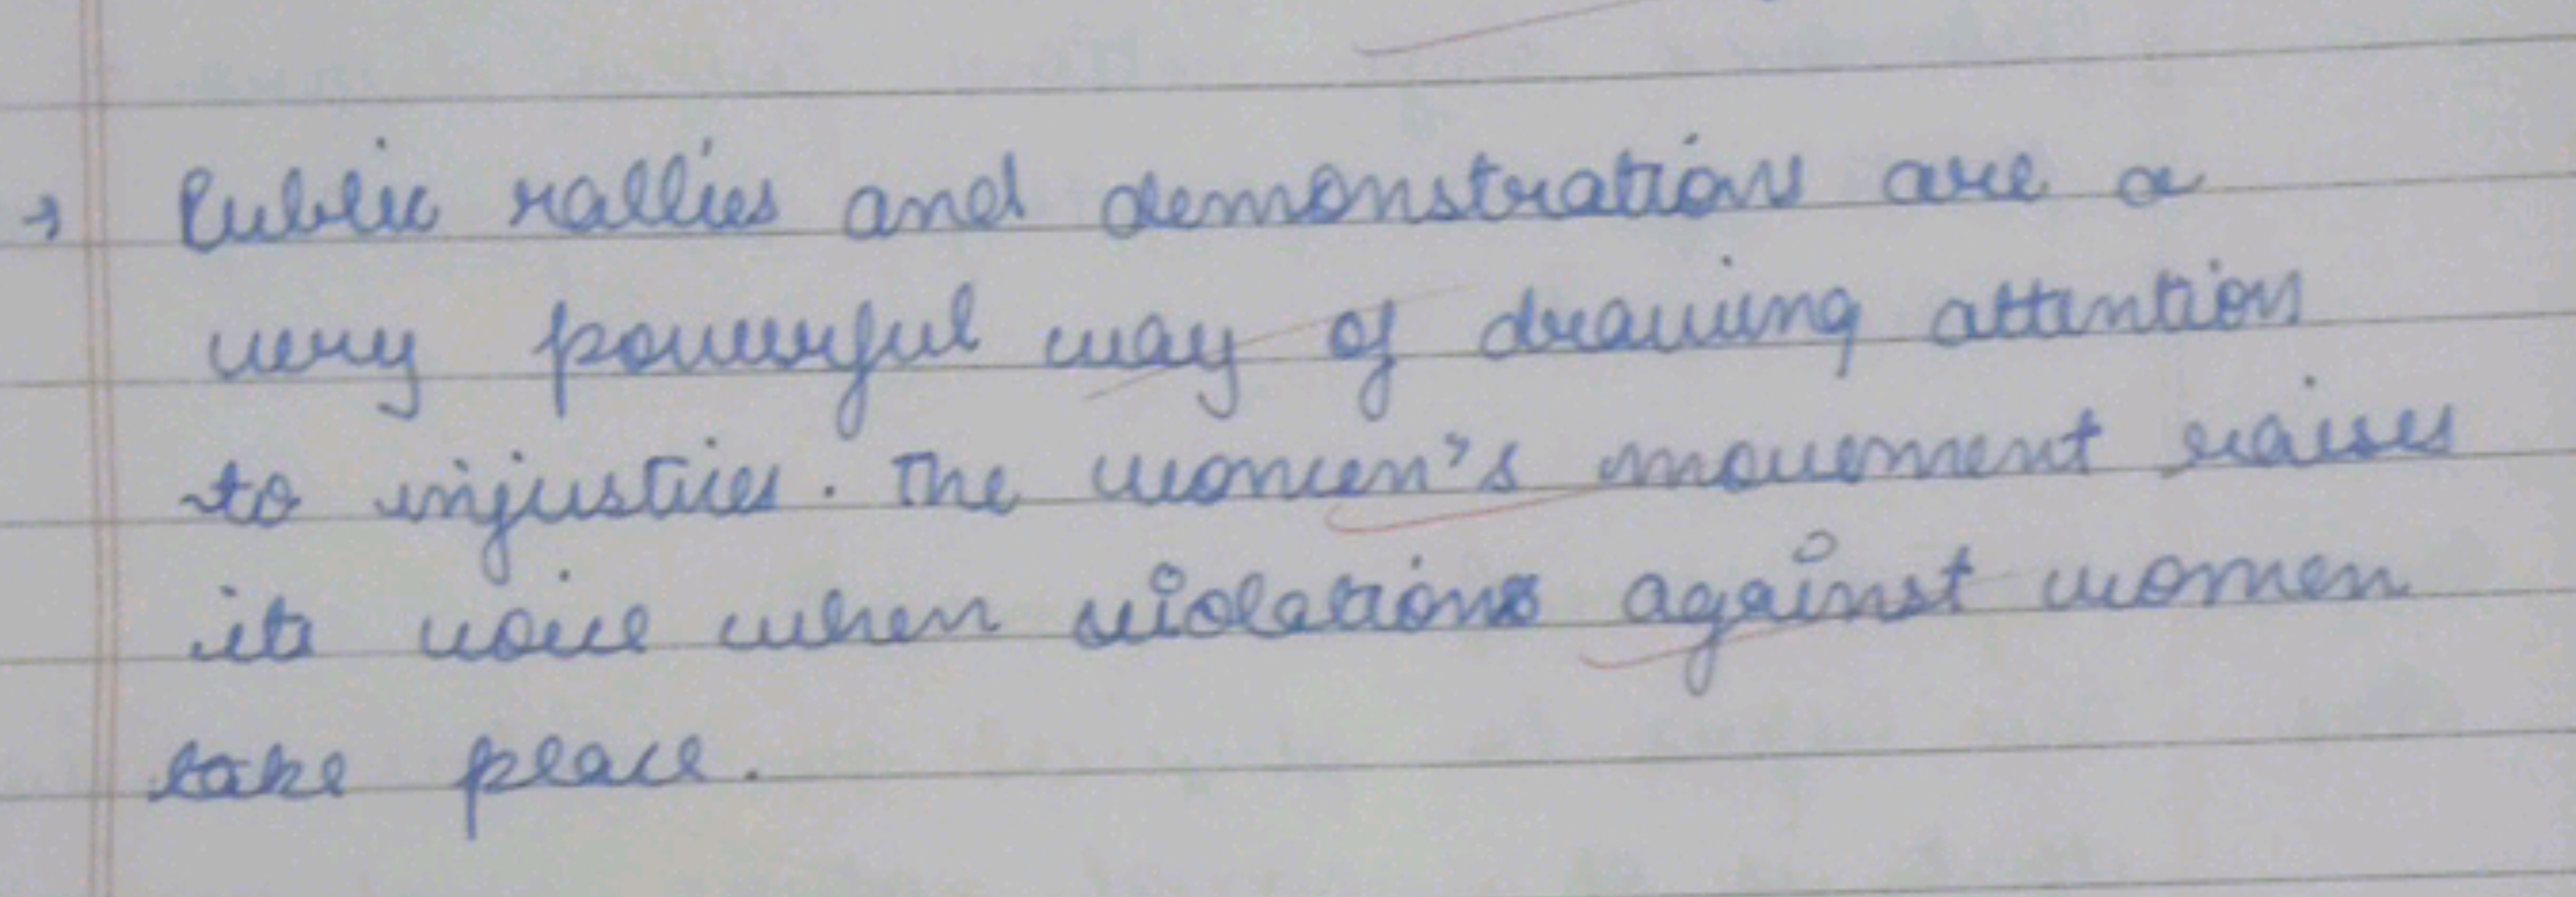 → Public rallies and demonstrations are a
very powerful way of drawing attention
to injustices. The women's movement raises
its voice when violations against women
take place.